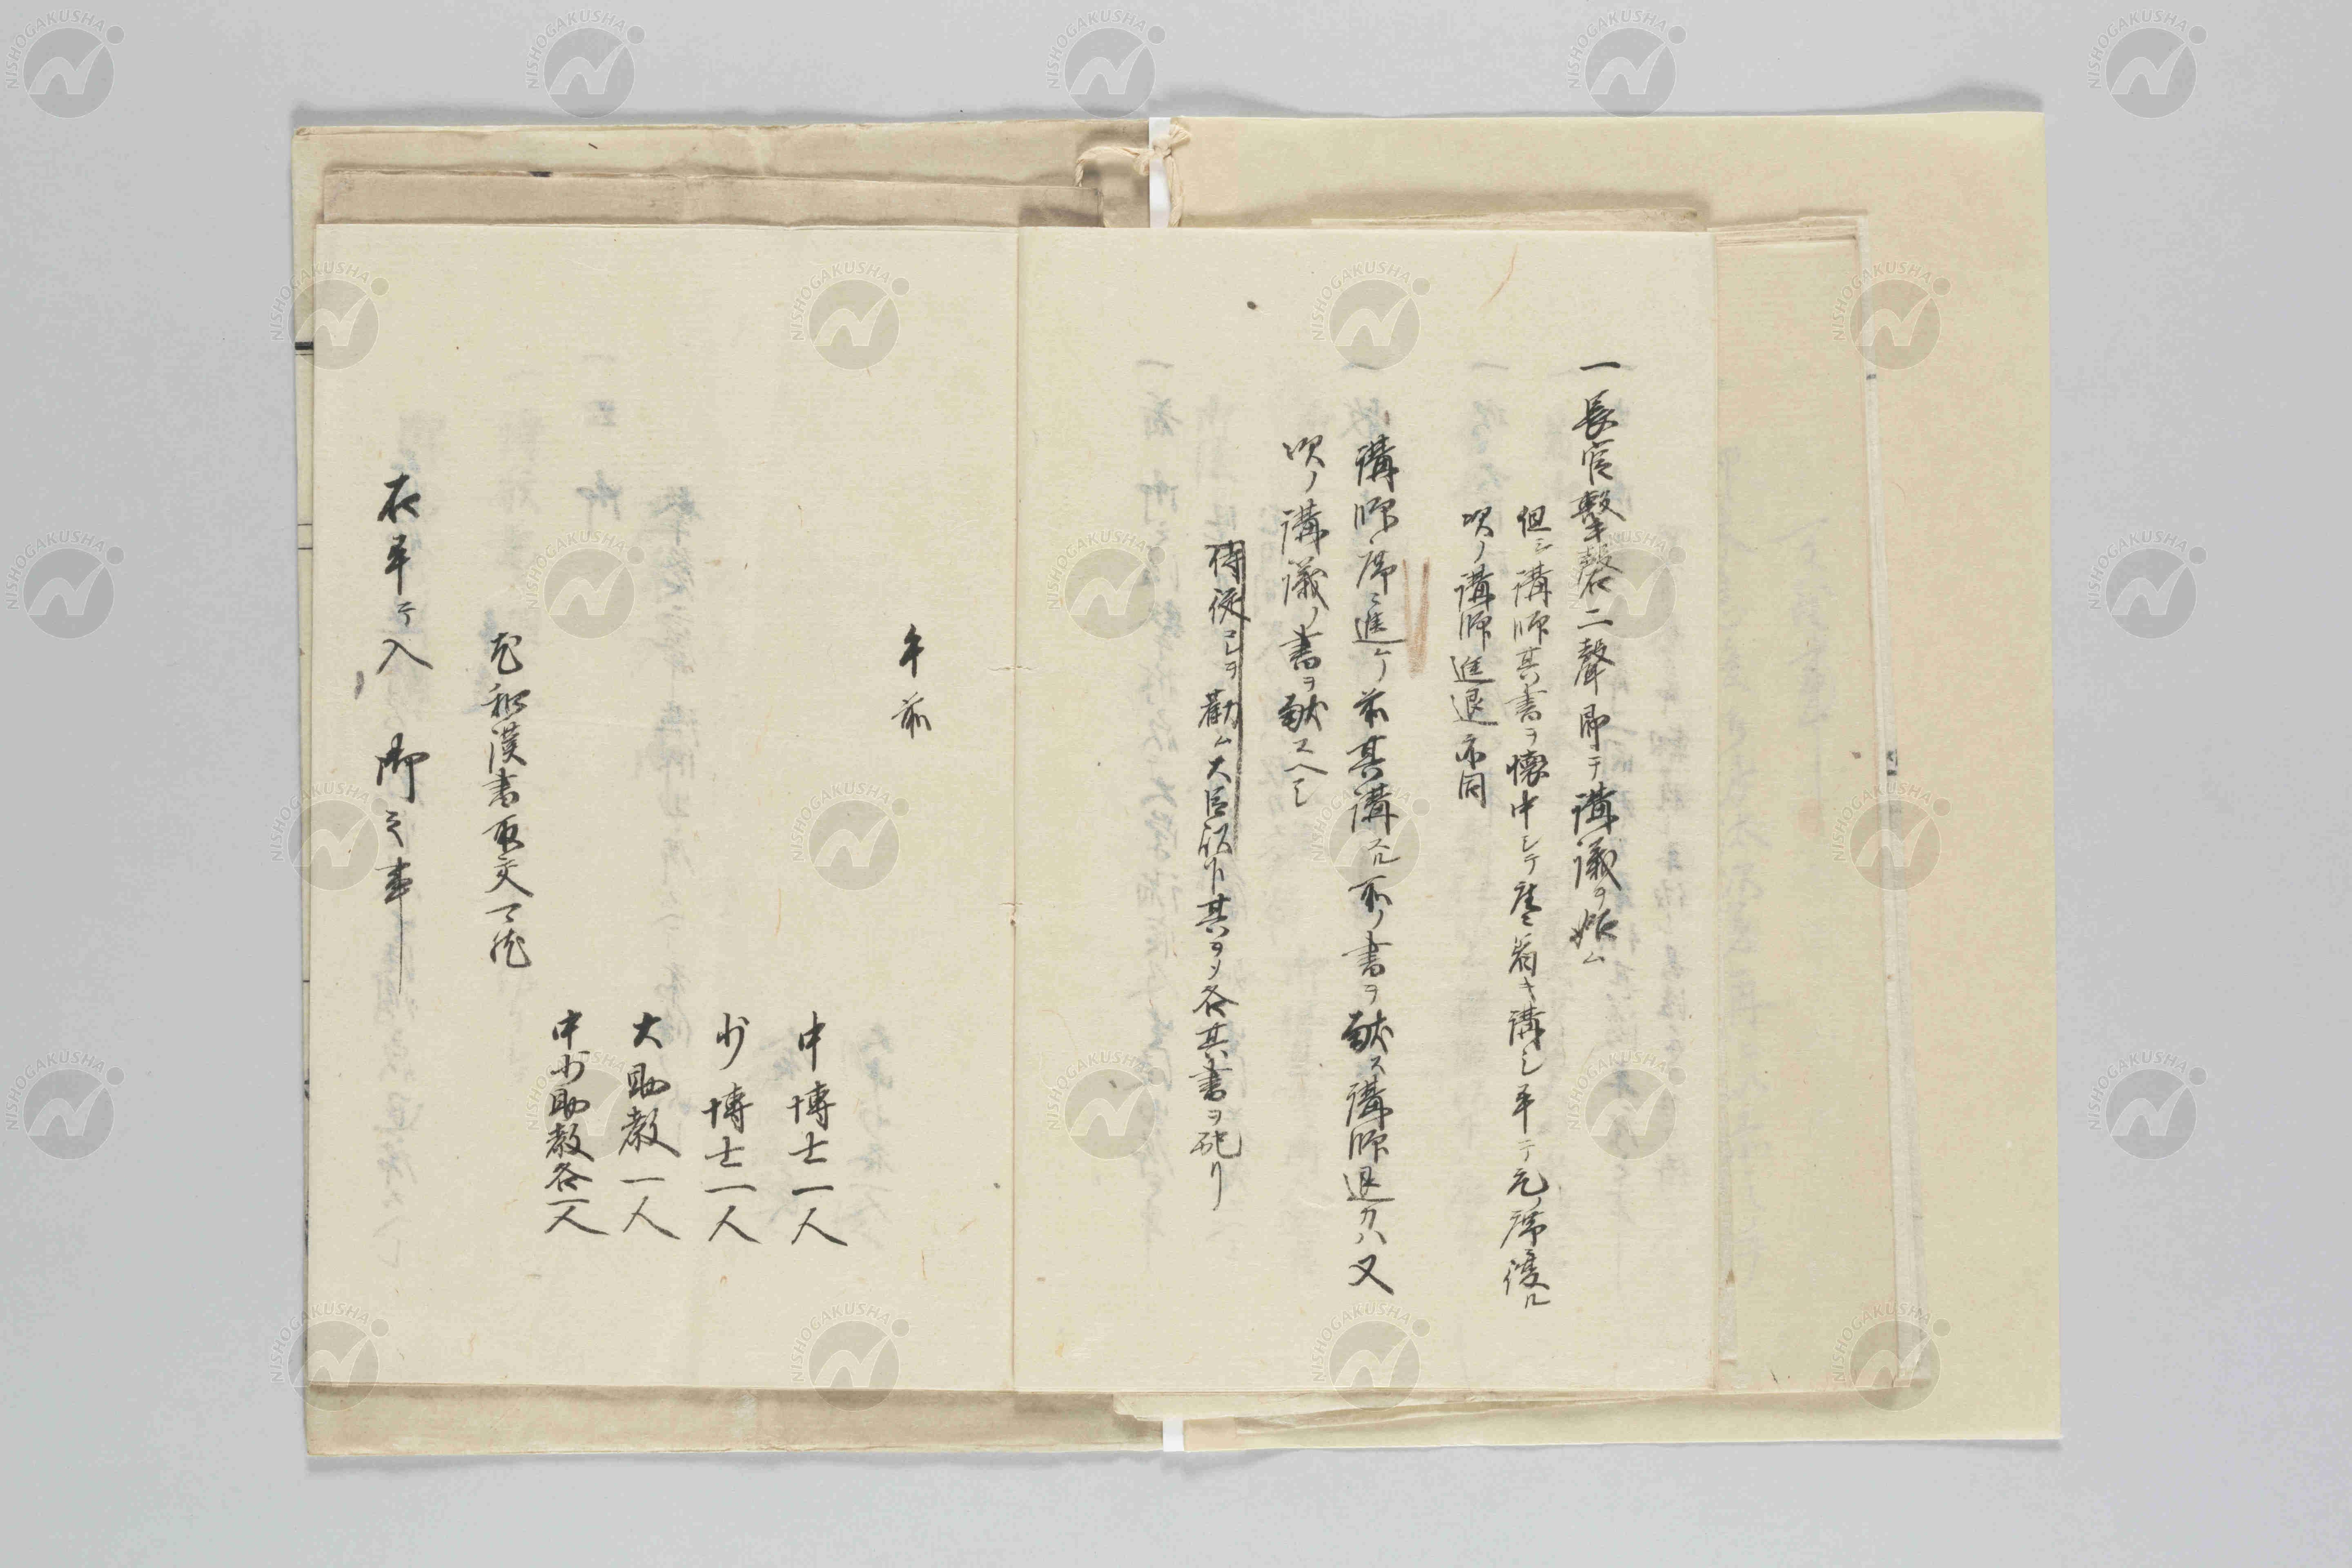 一長官撃磬二聲即テ講議ヲ始ム
但シ講師其書ヲ懐中シテ座ニ着キ講シ畢テ元ノ席復ル
次ノ講師進退亦同
講師席ニ進ケノ前其講スル所ノ書ヲ献ス講師退カハ又
次ノ講議ノ書ヲ献スヘシ
侍従コレヲ勸ム大臣以下其 各其書ヲ
午前
中博士一人
少博士一人
大助教一人
中少助教各一人
但和漢書取交
右畢テ入御之事
NISHOGAKUSHA